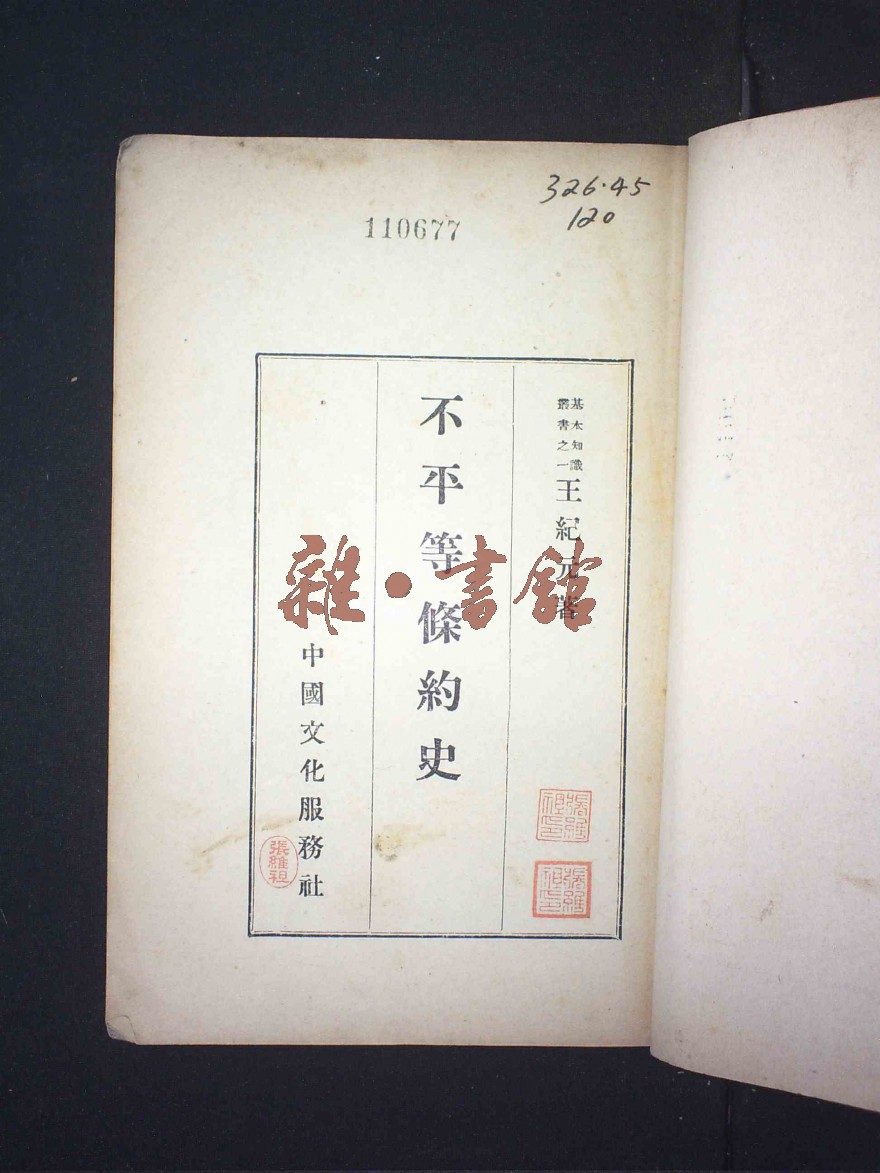 326.45
120
110677
基本知識
叢書之一
王紀元著
不平等條約史
中國文化服務社
雜·書館
張維祖印
張維祖印
張維祖